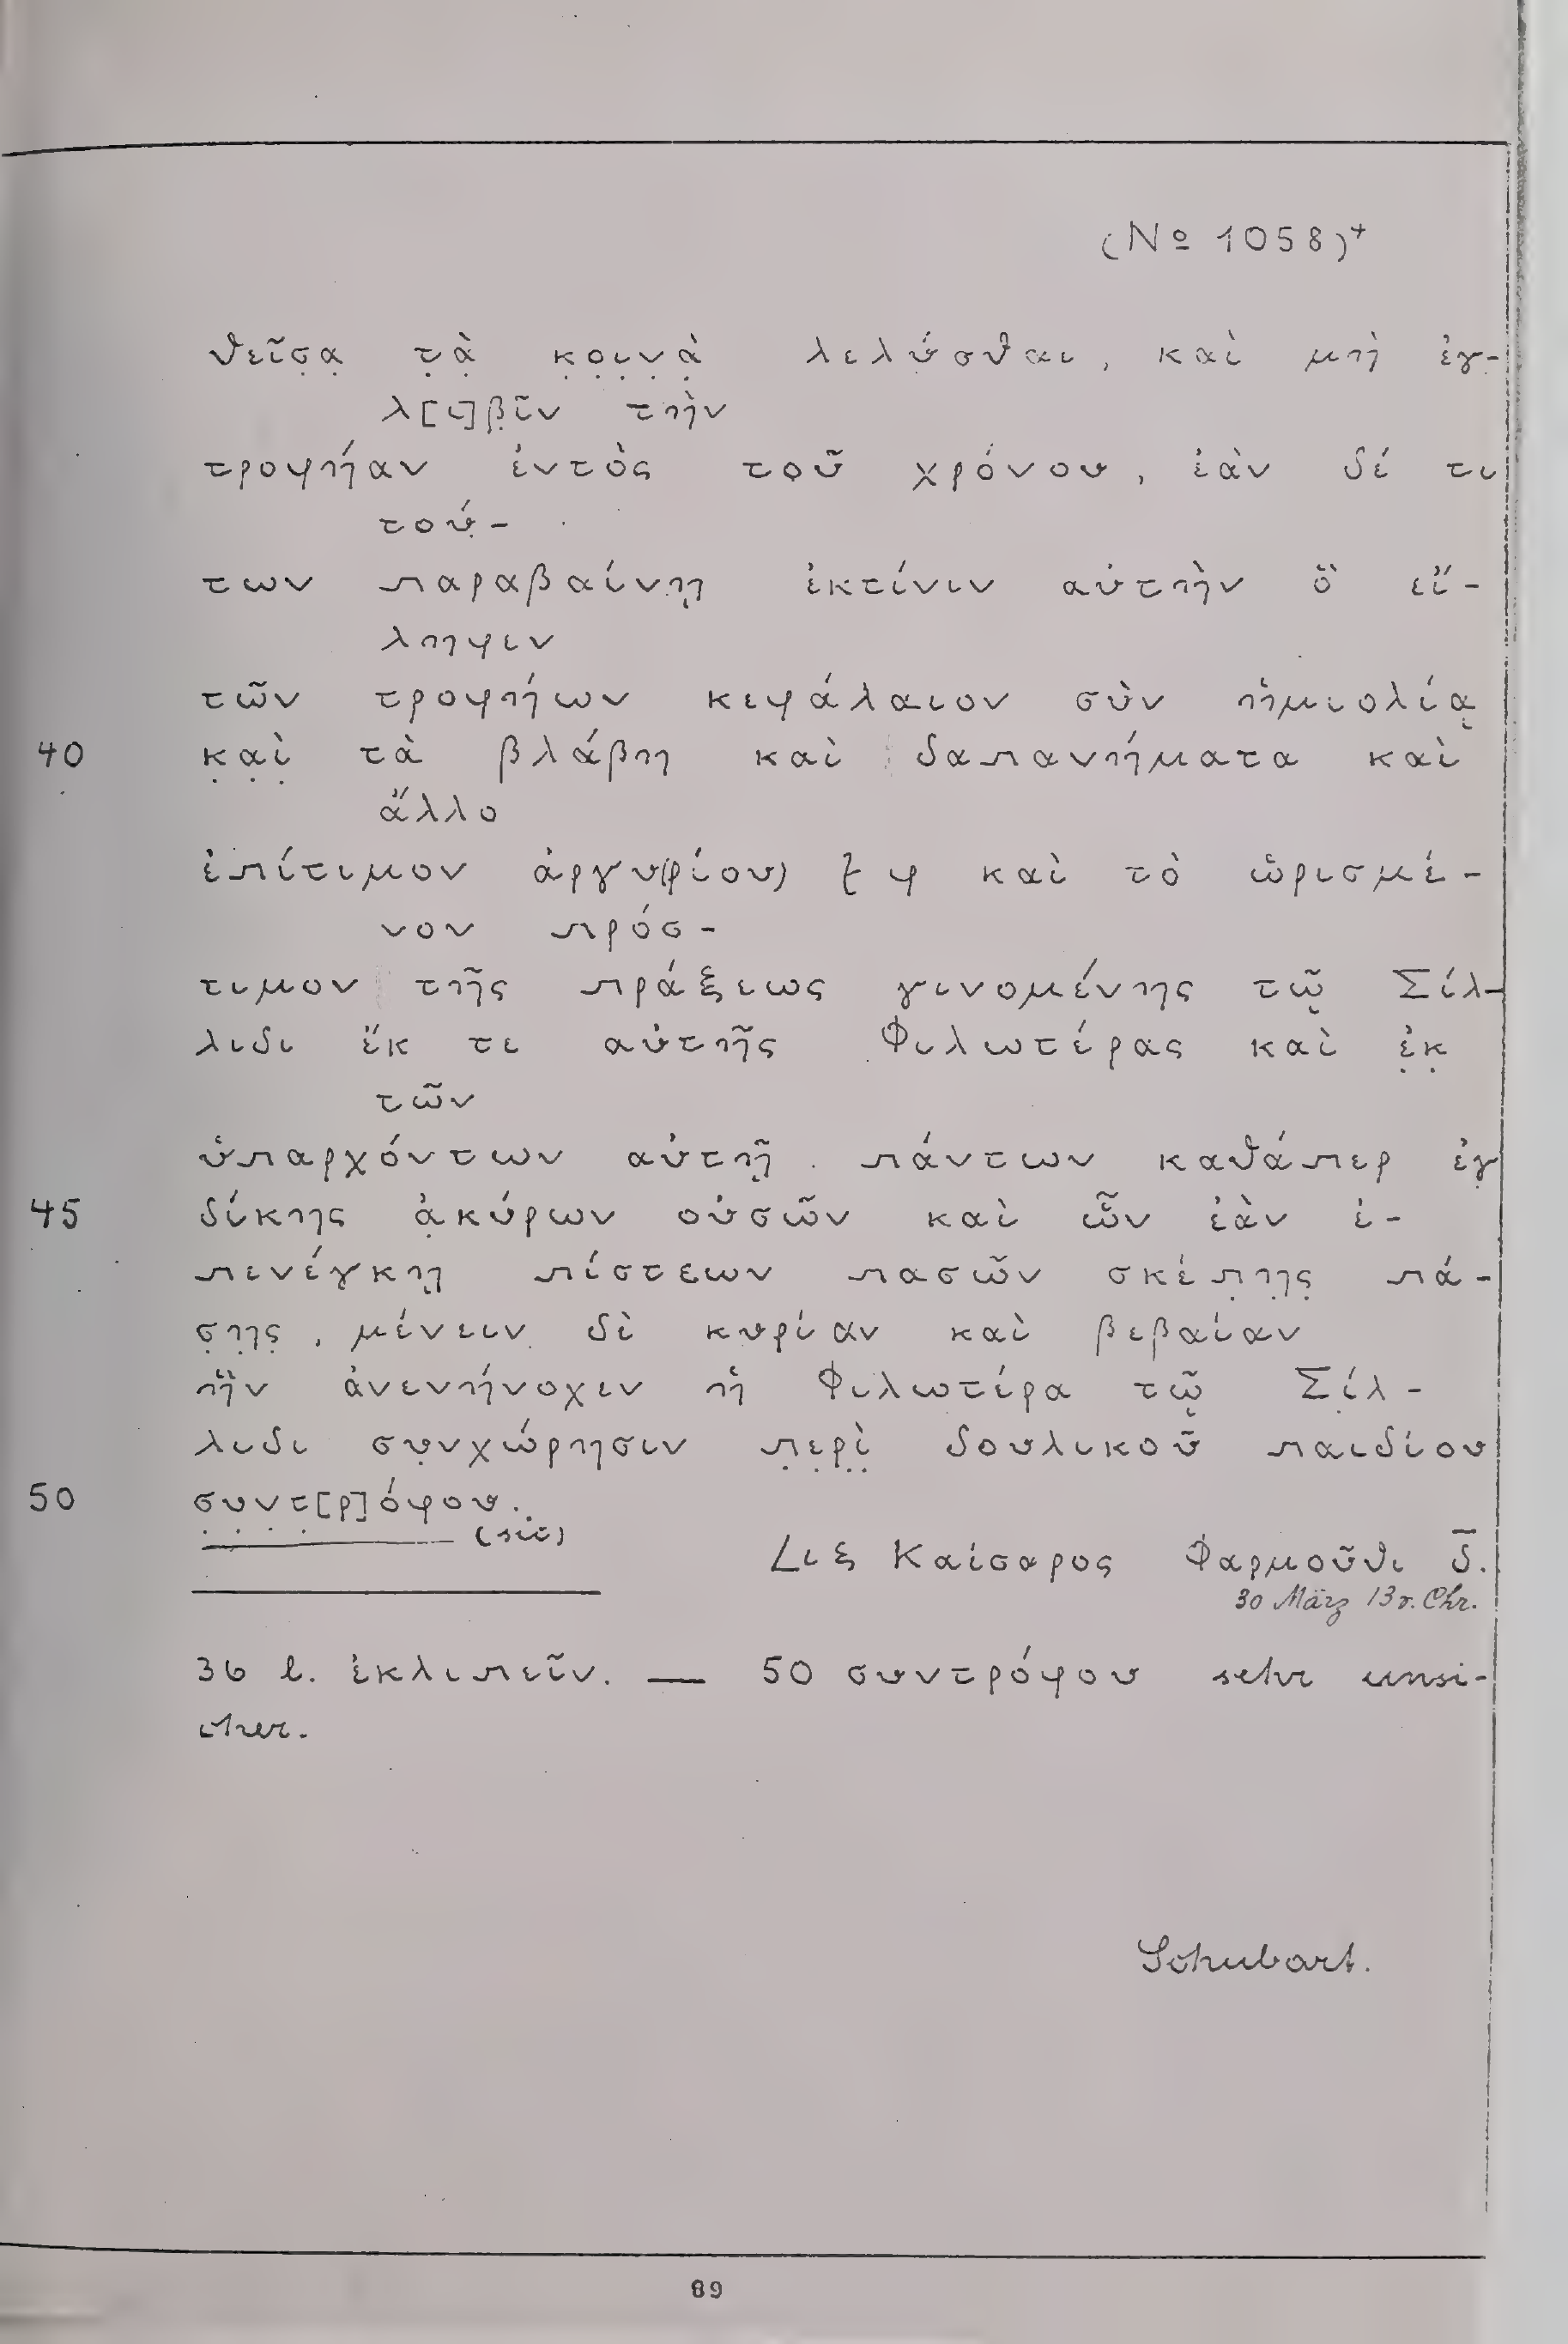 (№ 1058)+
θεῖσ̣α̣ τ̣ὰ̣ κ̣ο̣ι̣ν̣ὰ̣ λελύσθαι, καὶ μὴ ἐγ-
λ[ι]β̣ῖν τὴν
τροφήαν ἐντὸς τοῦ χρόνου, ἐὰν δέ τι
τού̣-
των παραβαίνῃ ἐκτίνιν αὐτὴν ὃ εἴ-
ληφιν
τῶν τροφήων κεφάλαιον σὺν ἡμιολίᾳ
40 κ̣α̣ὶ̣ τὰ βλάβη καὶ δαπανήματα καὶ
ἄλλο
ἐπίτιμον ἀργυ(ρίου) ξ φ καὶ τὸ ὡρισμέ-
νον πρόσ-
τιμον τῆς πράξεως γινομένης τῷ Σίλ-
λιδι ἔκ τε αὐτῆς Φιλωτέρας καὶ ἐ̣κ̣
τῶν
ὑπαρχόντων αὐτῇ πάντων καθάπερ ἐγ
45 δίκης ἀ̣κύρων οὐσῶν καὶ ὧν ἐὰν ἐ-
πενέγκῃ πίστεων πασῶν σκέπ̣η̣ς̣ πά-
σ̣η̣ς̣, μένειν δὲ κυρίαν καὶ βεβαίαν
ἣν ἀνενήνοχεν ἡ Φιλωτέρα τῷ Σίλ-
λιδι συ̣νχώρησιν π̣ε̣ρ̣ὶ̣ δουλικοῦ παιδίου
50 σ̣υ̣ν̣τ̣[ρ]όφου.
(sic)
Lιξ Καίσαρος Φαρμοῦθι δ̅.
30 März 13 v. Chr.
36 l. ἐκλιπεῖν. — 50 συντρόφου sehr unsi-
cher.
Schubart.
89